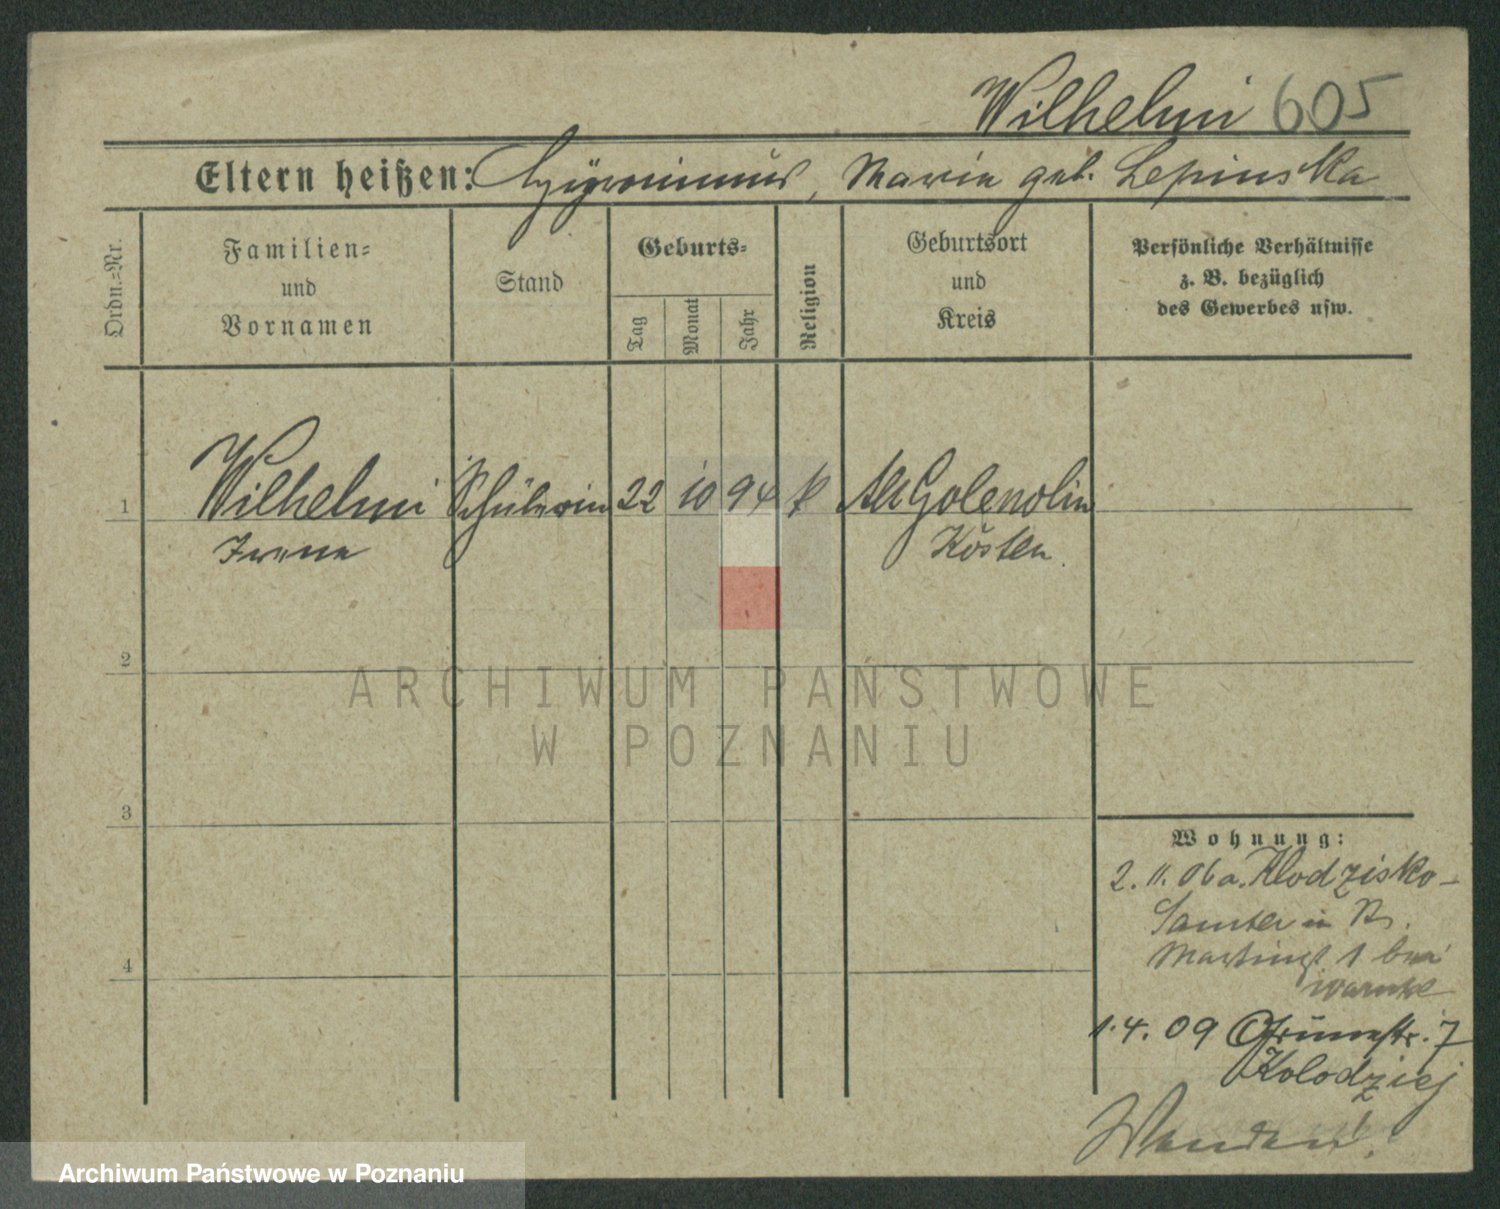 Wilhelmi 605
Eltern heißen: Hyeronimus, Maria geb. Lepinska
Ordn.-Nr.
Familien-
und
Vornamen
Stand
Geburts-
Tag
Monat
Jahr
Religion
Geburtsort
und
Kreis
Persönliche Verhältnisse
z. B. bezüglich
des Gewerbes usw.
1 Wilhelmi Schülerin 22 10 94 k Alt Golembin
Irene Kosten
2
ARCHIWUM PAŃSTWOWE
W POZNANIU
3
Wohnung:
2. 11. 06 a. Klodzisko-
Samter in
4
Martinst 1 bei
Warnke
1.4.09 Grünestr. 7
Kolodziej
Archiwum Państwowe w Poznaniu